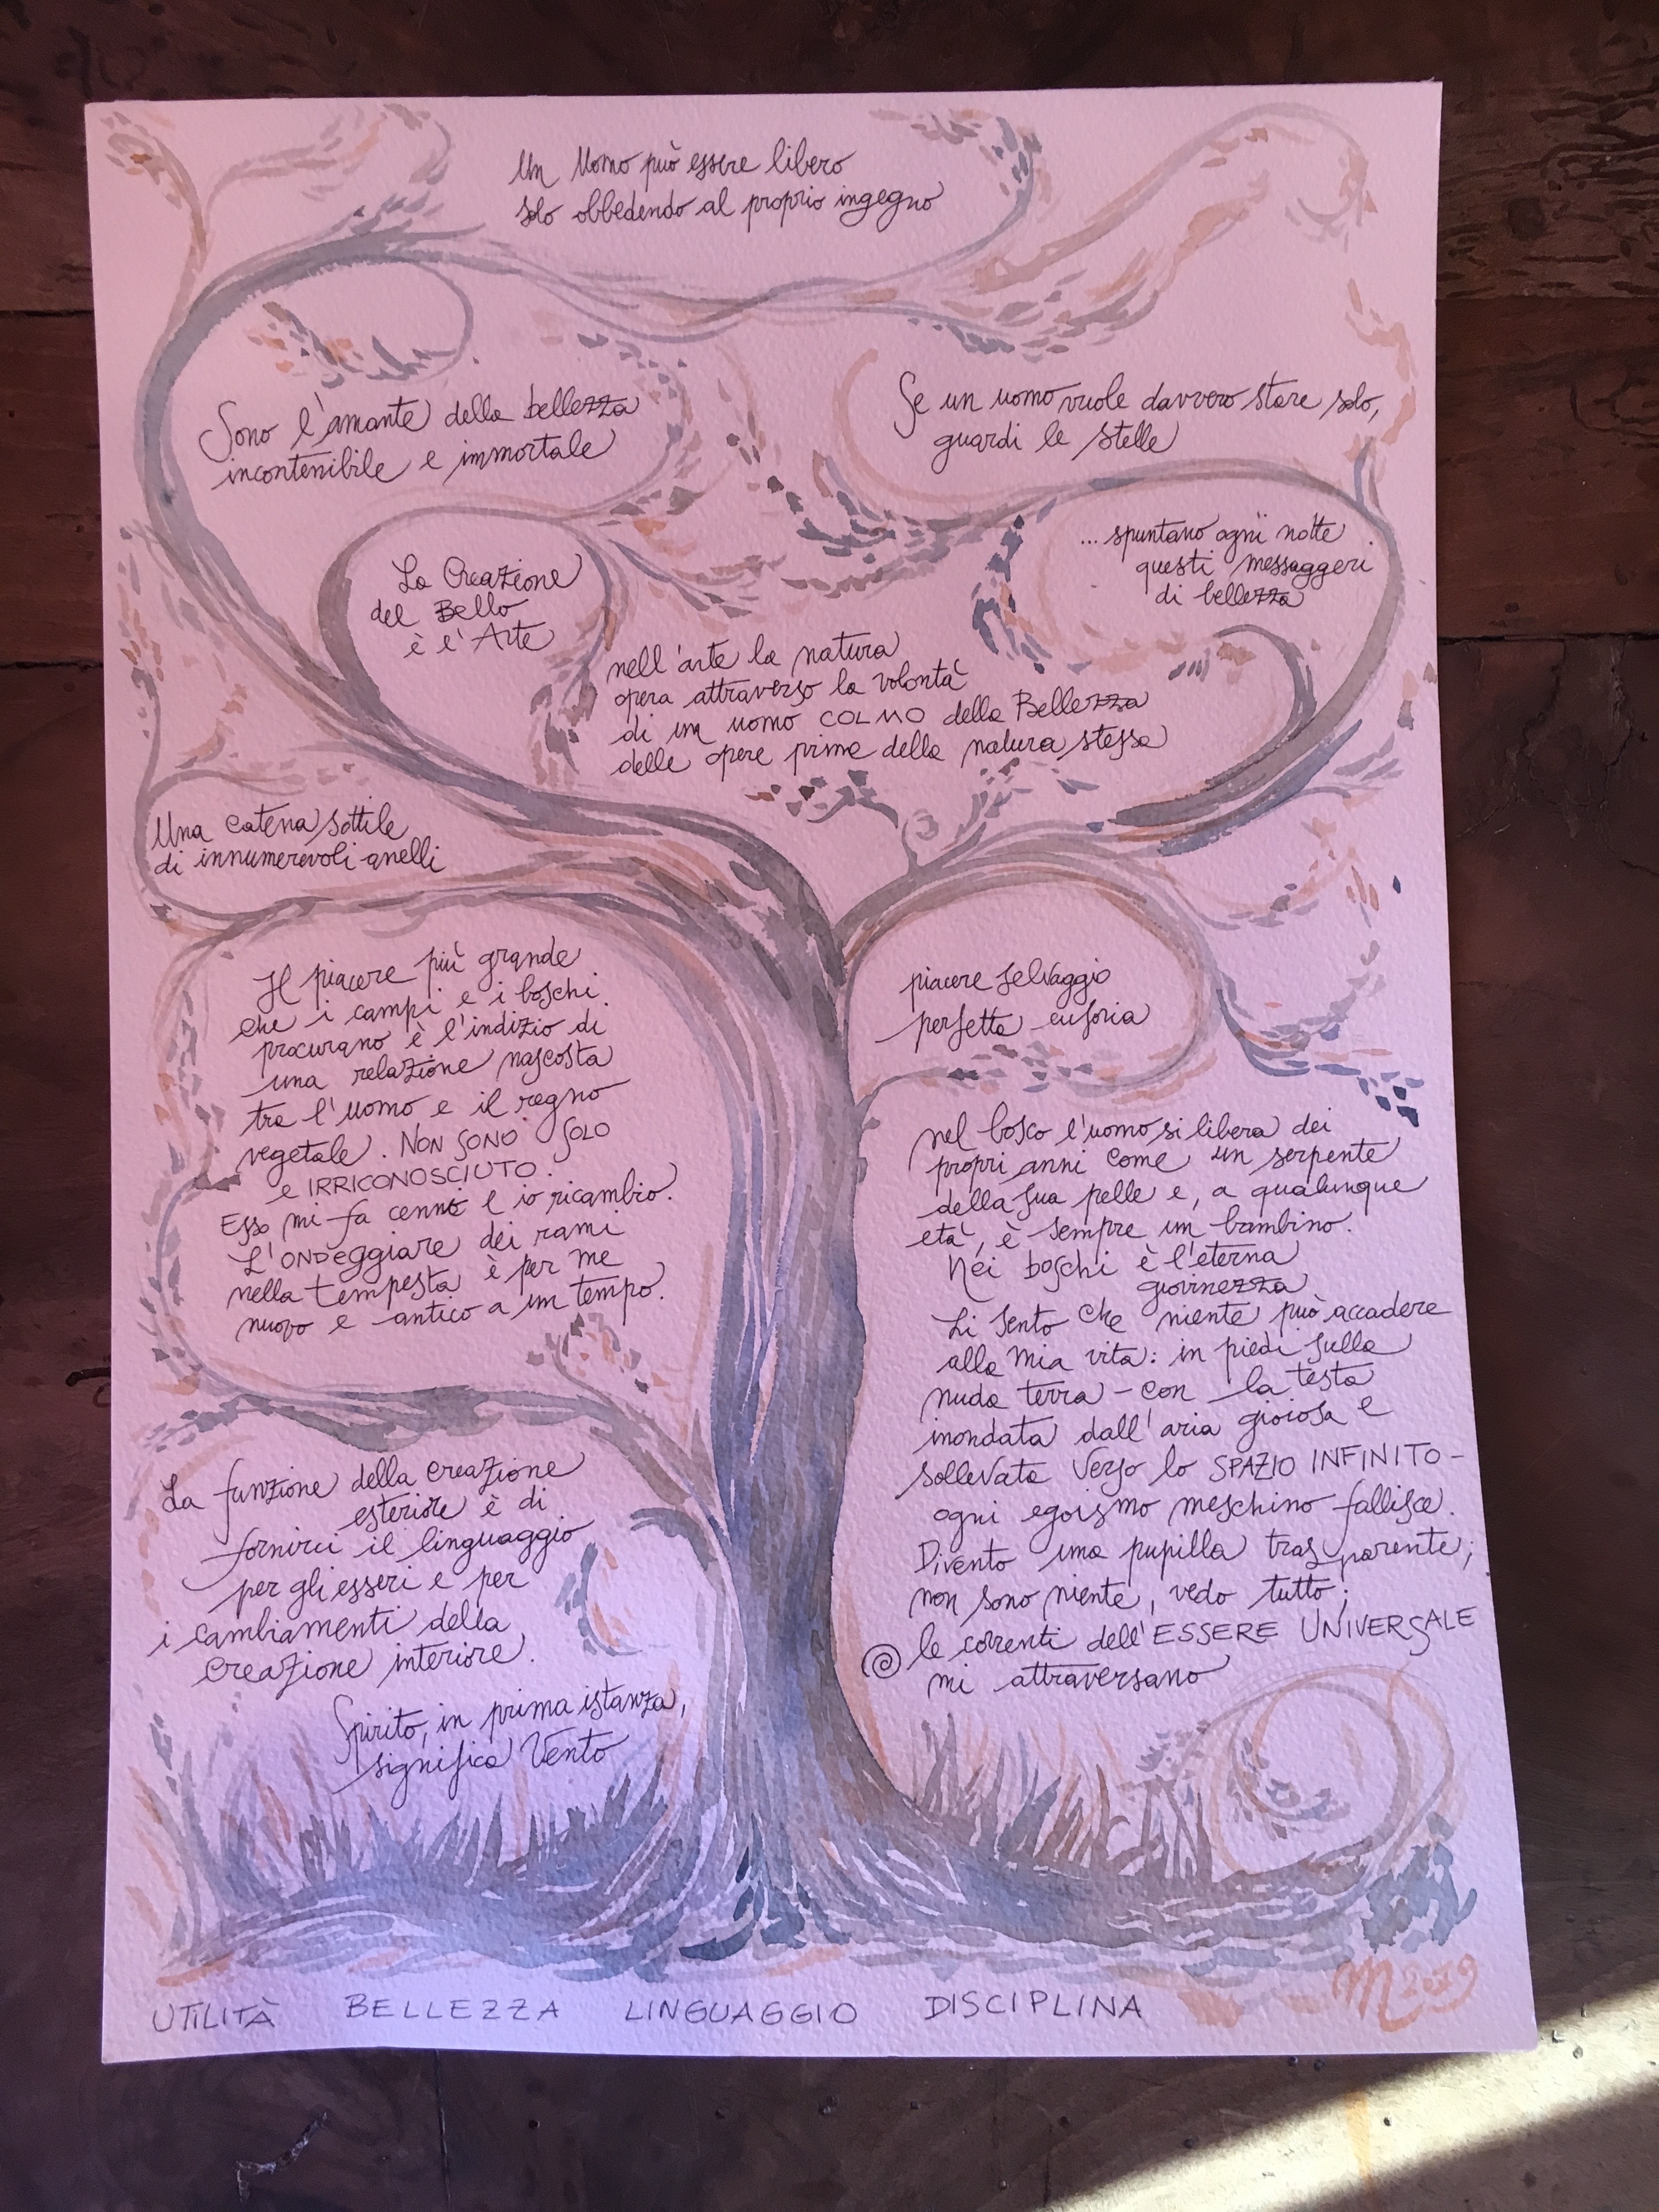 Un Uomo può essere libero
solo obbedendo al proprio ingegno
Sono l'amante della bellezza
incontenibile e immortale
Se un uomo vuole davvero stare solo,
guardi le stelle
... spuntano ogni notte
questi messaggeri
di bellezza
La Creazione
del Bello
è l'Arte
nell'arte la natura
opera attraverso la volontà
di un uomo COLMO della Bellezza
delle opere prime della natura stessa
Una catena sottile
di innumerevoli anelli
Il piacere più grande
che i campi e i boschi
procurano è l'indizio di
una relazione nascosta
tra l'uomo e il regno
vegetale. NON SONO SOLO
e IRRICONOSCIUTO.
Esso mi fa cenno e io ricambio.
L'ONDeggiare dei rami
nella tempesta è per me
nuovo e antico a un tempo.
piacere selvaggio
perfetta euforia
nel bosco l'uomo si libera dei
propri anni come un serpente
della sua pelle e, a qualunque
età, è sempre un bambino.
Nei boschi è l'eterna
giovinezza
Lì sento che niente può accadere
alla mia vita: in piedi sulla
nuda terra - con la testa
inondata dall'aria gioiosa e
sollevata verso lo SPAZIO INFINITO -
ogni egoismo meschino fallisce.
Divento una pupilla trasparente;
non sono niente, vedo tutto;
le correnti dell'ESSERE UNIVERSALE
mi attraversano
La funzione della creazione
esteriore è di
fornirci il linguaggio
per gli esseri e per
i cambiamenti della
creazione interiore.
Spirito, in prima istanza,
significa Vento
UTILITÀ BELLEZZA LINGUAGGIO DISCIPLINA
M 2019